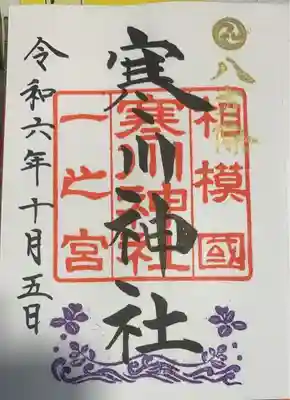 八方除
相模國
寒川神社
一之宮
寒川神社
令和六年十月五日